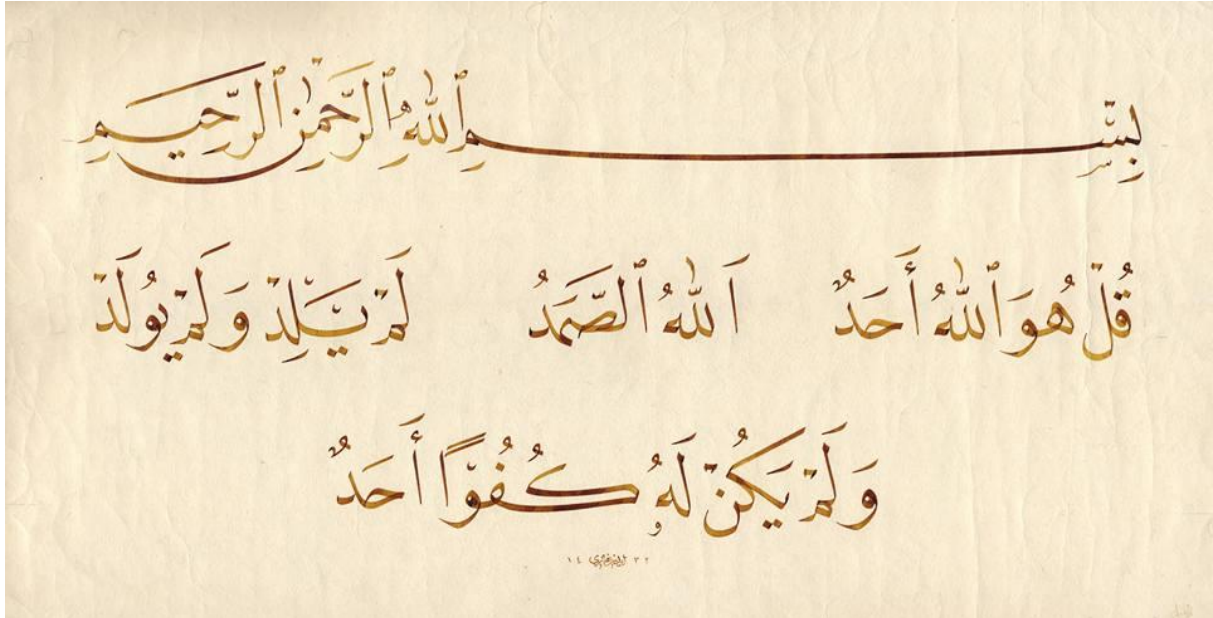 بِسْمِ ٱللّٰهِ ٱلرَّحْمٰنِ ٱلرَّحِيمِ
قُلْ هُوَ ٱللّٰهُ أَحَدٌ ٱَللّٰهُ ٱلصَّمَدُ لَمْ يَلِدْ وَلَمْ يُولَدْ
وَلَمْ يَكُنْ لَهُۥ كُفُوًا أَحَدٌ
١٤ ٣٢